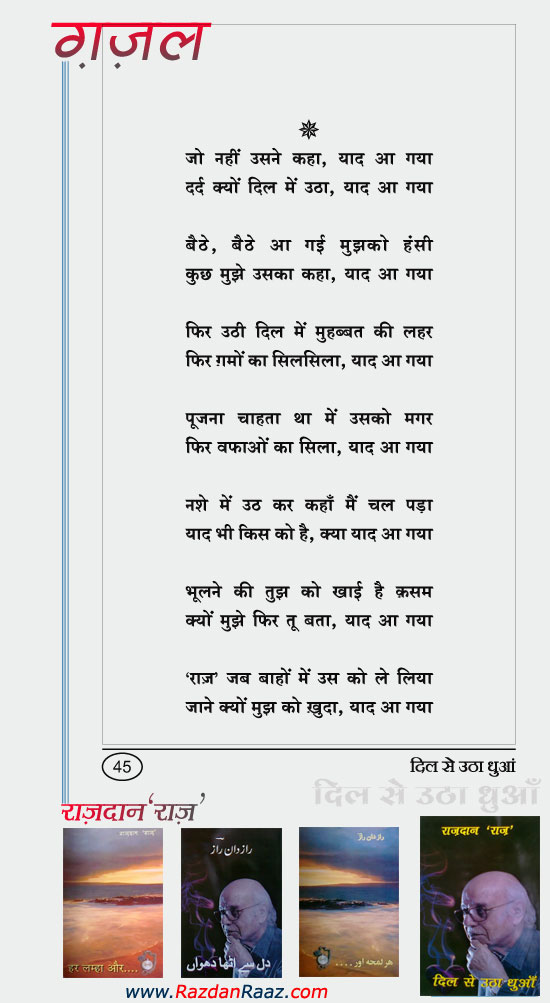 ग़ज़ल
जो नहीं उसने कहा, याद आ गया
दर्द क्यों दिल में उठा, याद आ गया
बैठे, बैठे आ गई मुझको हंसी
कुछ मुझे उसका कहा, याद आ गया
फिर उठी दिल में मुहब्बत की लहर
फिर ग़मों का सिलसिला, याद आ गया
पूजना चाहता था में उसको मगर
फिर वफाओं का सिला, याद आ गया
नशे में उठ कर कहाँ मैं चल पड़ा
याद भी किस को है, क्या याद आ गया
भूलने की तुझ को खाई है क़सम
क्यों मुझे फिर तू बता, याद आ गया
‘राज़’ जब बाहों में उस को ले लिया
जाने क्यों मुझ को ख़ुदा, याद आ गया
45
दिल से उठा धुआं
दिल से उठा धुआँ
राज़दान ‘राज़’
राज़दान ‘राज़’
हर लम्हा और....
راز دان رازؔ
دل سے اٹھا دھواں
راز دان راز
ہر لمحہ اور....
राज़दान ‘राज़’
दिल से उठा धुआँ
www.RazdanRaaz.com